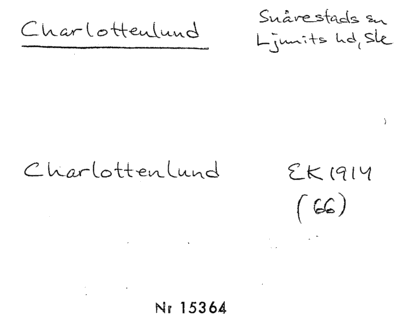 Charlottenlund
Snårestads sn
Ljunits hd, Sk
Charlottenlund
EK 1914
(66)
Nr 15364